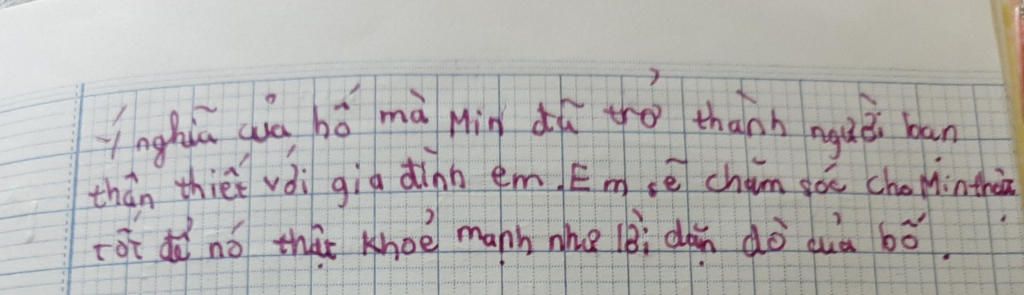 Ý nghĩa của bố mà Min đã trở thành người bạn
thân thiết với gia đình em. Em sẽ chăm sóc cho Min thật
tốt để nó thật khoẻ mạnh như lời dặn dò của bố.